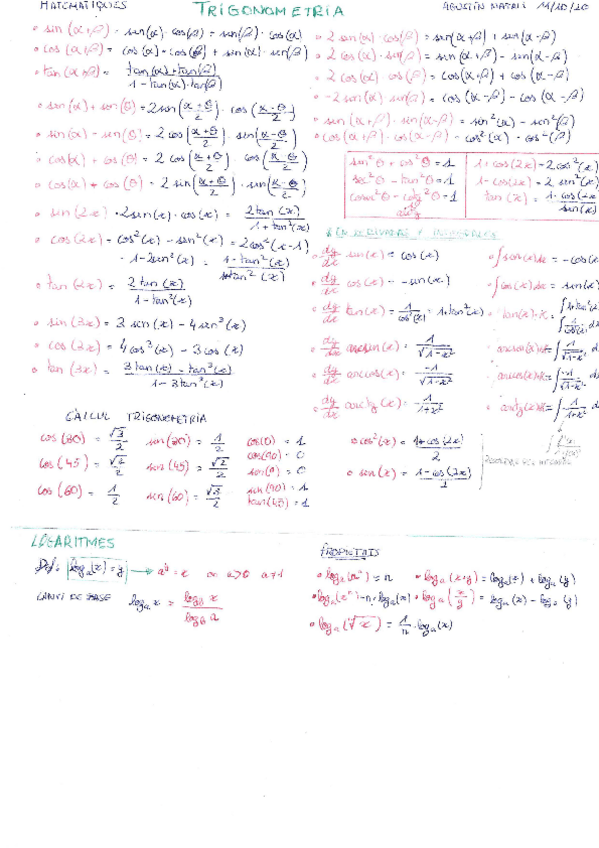 MATEMÀTIQUES TRIGONOMETRIA AGUSTÍN 14/10/20
sin (α+β) = sin(α)·cos(β) + sin(β)·cos(α)
cos (α+β) = cos(α)·cos(β) + sin(α)·sin(β)
tan (α+β) = tan(α)+tan(β) / 1 - tan(α)·tan(β)
sin(α) + sin(θ) = 2 sin(α+θ / 2) · cos(α-θ / 2)
sin(α) - sin(θ) = 2 cos(α+θ / 2) · sin(α-θ / 2)
cos(α) + cos(θ) = 2 cos(α+θ / 2) cos(α-θ / 2)
cos(α) + cos(θ) - 2 sin(α+θ / 2) · sin(α-θ / 2)
sin (2x) = 2 sin(x)·cos(x) = 2 tan(x) / 1+tan²(x)
cos (2x) = cos²(x) - sin²(x) = 2cos²(x-1)
1-2sin²(x) = 1-tan²(x) / 1+tan²(x)
tan (2x) = 2 tan(x) / 1-tan²(x)
sin (3x) = 3 sen(x) - 4 sen³(x)
cos (3x) = 4 cos³(x) - 3 cos(x)
tan (3x) = 3 tan(x) - tan³(x) / 1-3tan²(x)
2 sin(α)·cos(β) = sin(α+β) + sin(α-β)
2 cos(α)·sin(β) = sin(α+β) - sin(α-β)
2 cos(α)·cos(β) = cos(α+β) + cos(α-β)
-2 sin(α)·sin(β) = cos(α+β) - cos(α-β)
sin(α+β)·sin(α-β) = sin²(α) - sin²(β)
cos(α+β)·cos(α-β) = cos²(α) - cos²(β)
sin²θ + cos²θ = 1
sec²θ - tan²θ = 1
cosec²θ - cotg²θ = 1
1+cos(2x) = 2cos²(x)
1-cos(2x) = 2 sen²(x)
tan(x) = 1-cos(2x / sin(2x)
* EN DERIVADES I INTEGRALS
dy/dx sin(x) = cos(x) ∫sin(x)dx = -cos(x
dy/dx cos(x) = -sin(x) ∫cos(x)dx = sin(x)
dy/dx tan(x) = 1/cos²(x) = 1+tan²(x)
dy/dx arcsin(x) = 1/√1-x²
dy/dx arccos(x) = -1/√1-x²
dy/dx arctg(x) = 1/1+x²
CÀLCUL TRIGONOMETRIA
cos (30) = √3/2 sin (30) = 1/2 cos(0) = 1
cos(90) = 0
cos (45) = √2/2 sin (45) = √2/2 sin(0) = 0
cos (60) = 1/2 sin (60) = √3/2 sin(90) = 1
tan(45) = 1
cos²(x) = 1+cos(2x) / 2
sin(x) = 1-cos(2x) / 1
LOGARITMES
Def: logₐ(x) = y → aᵇ = x a>0 a≠1
CANVI DE BASE logₐ x = log_b x / log_b a
PROPIETATS
logₐ(aⁿ) = n logₐ(x·y) = logₐ(x) + logₐ(y)
logₐ(xⁿ) = n·logₐ(x) logₐ(x/y) = logₐ(x) - logₐ(y)
logₐ(ⁿ√x) = 1/n · logₐ(x)